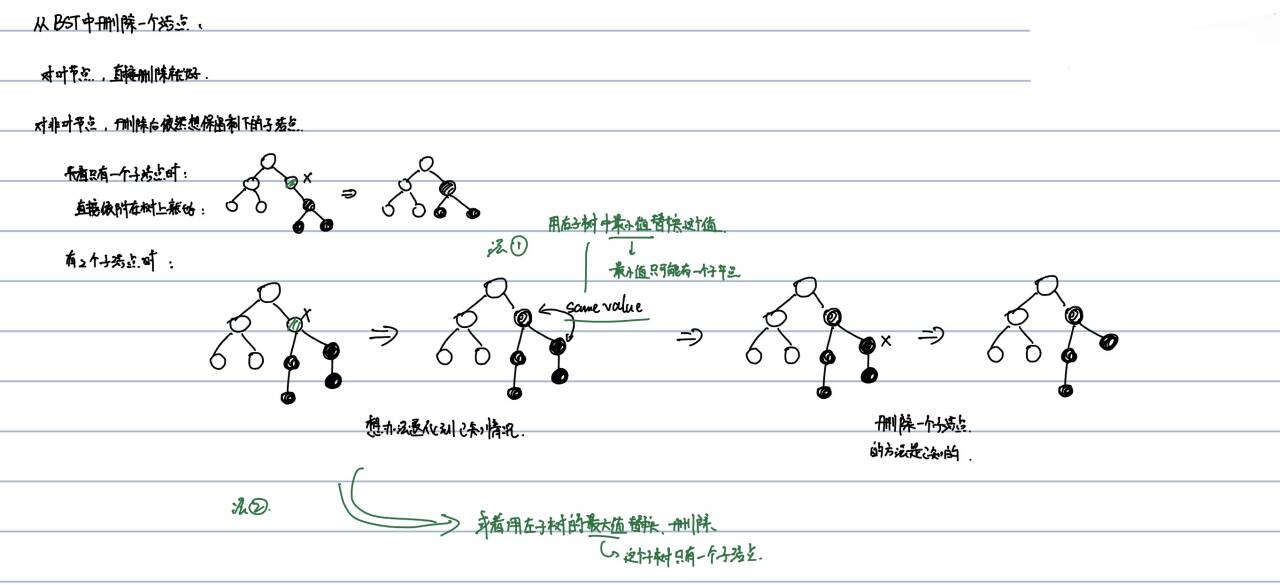 从BST中删除一个结点：
对叶节点，直接删除就好．
对非叶节点，删除后依然想保留剩下的子结点．
只有一个子结点时：
直接依附在树上就好：
x
用右子树中最小值替换这个值．
法①
最小值只可能有一个子节点
有2个子结点时：
x
same value
x
想办法退化到已知情况．
删除一个子结点
的方法是已知的．
法②.
或者用左子树的最大值替换、删除、
这个子树只有一个子结点．